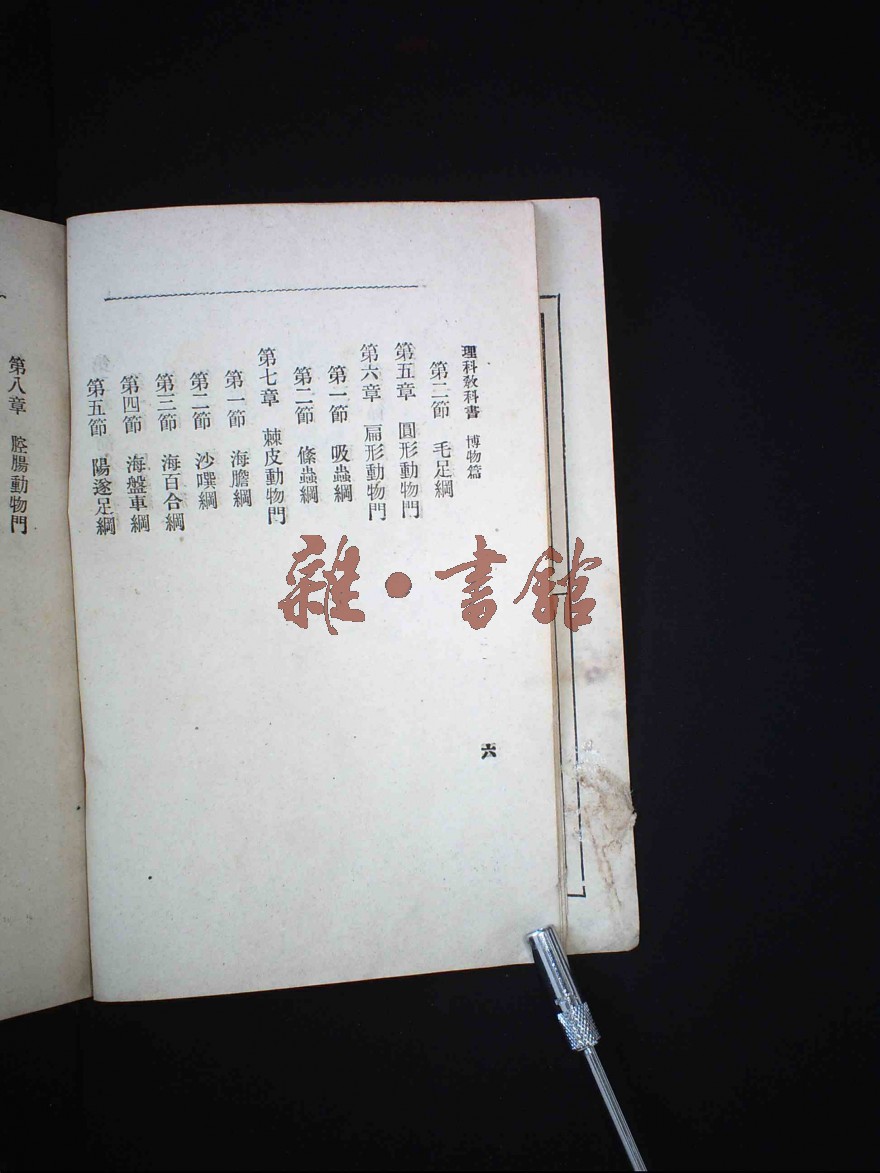 理科敎科書　博物篇
第二節　毛足綱
第五章　圓形動物門
第六章　扁形動物門
第一節　吸蟲綱
第二節　絛蟲綱
第七章　棘皮動物門
第一節　海膽綱
第二節　沙噀綱
第三節　海百合綱
第四節　海盤車綱
第五節　陽遂足綱
六
第八章　腔腸動物門
雜・書館